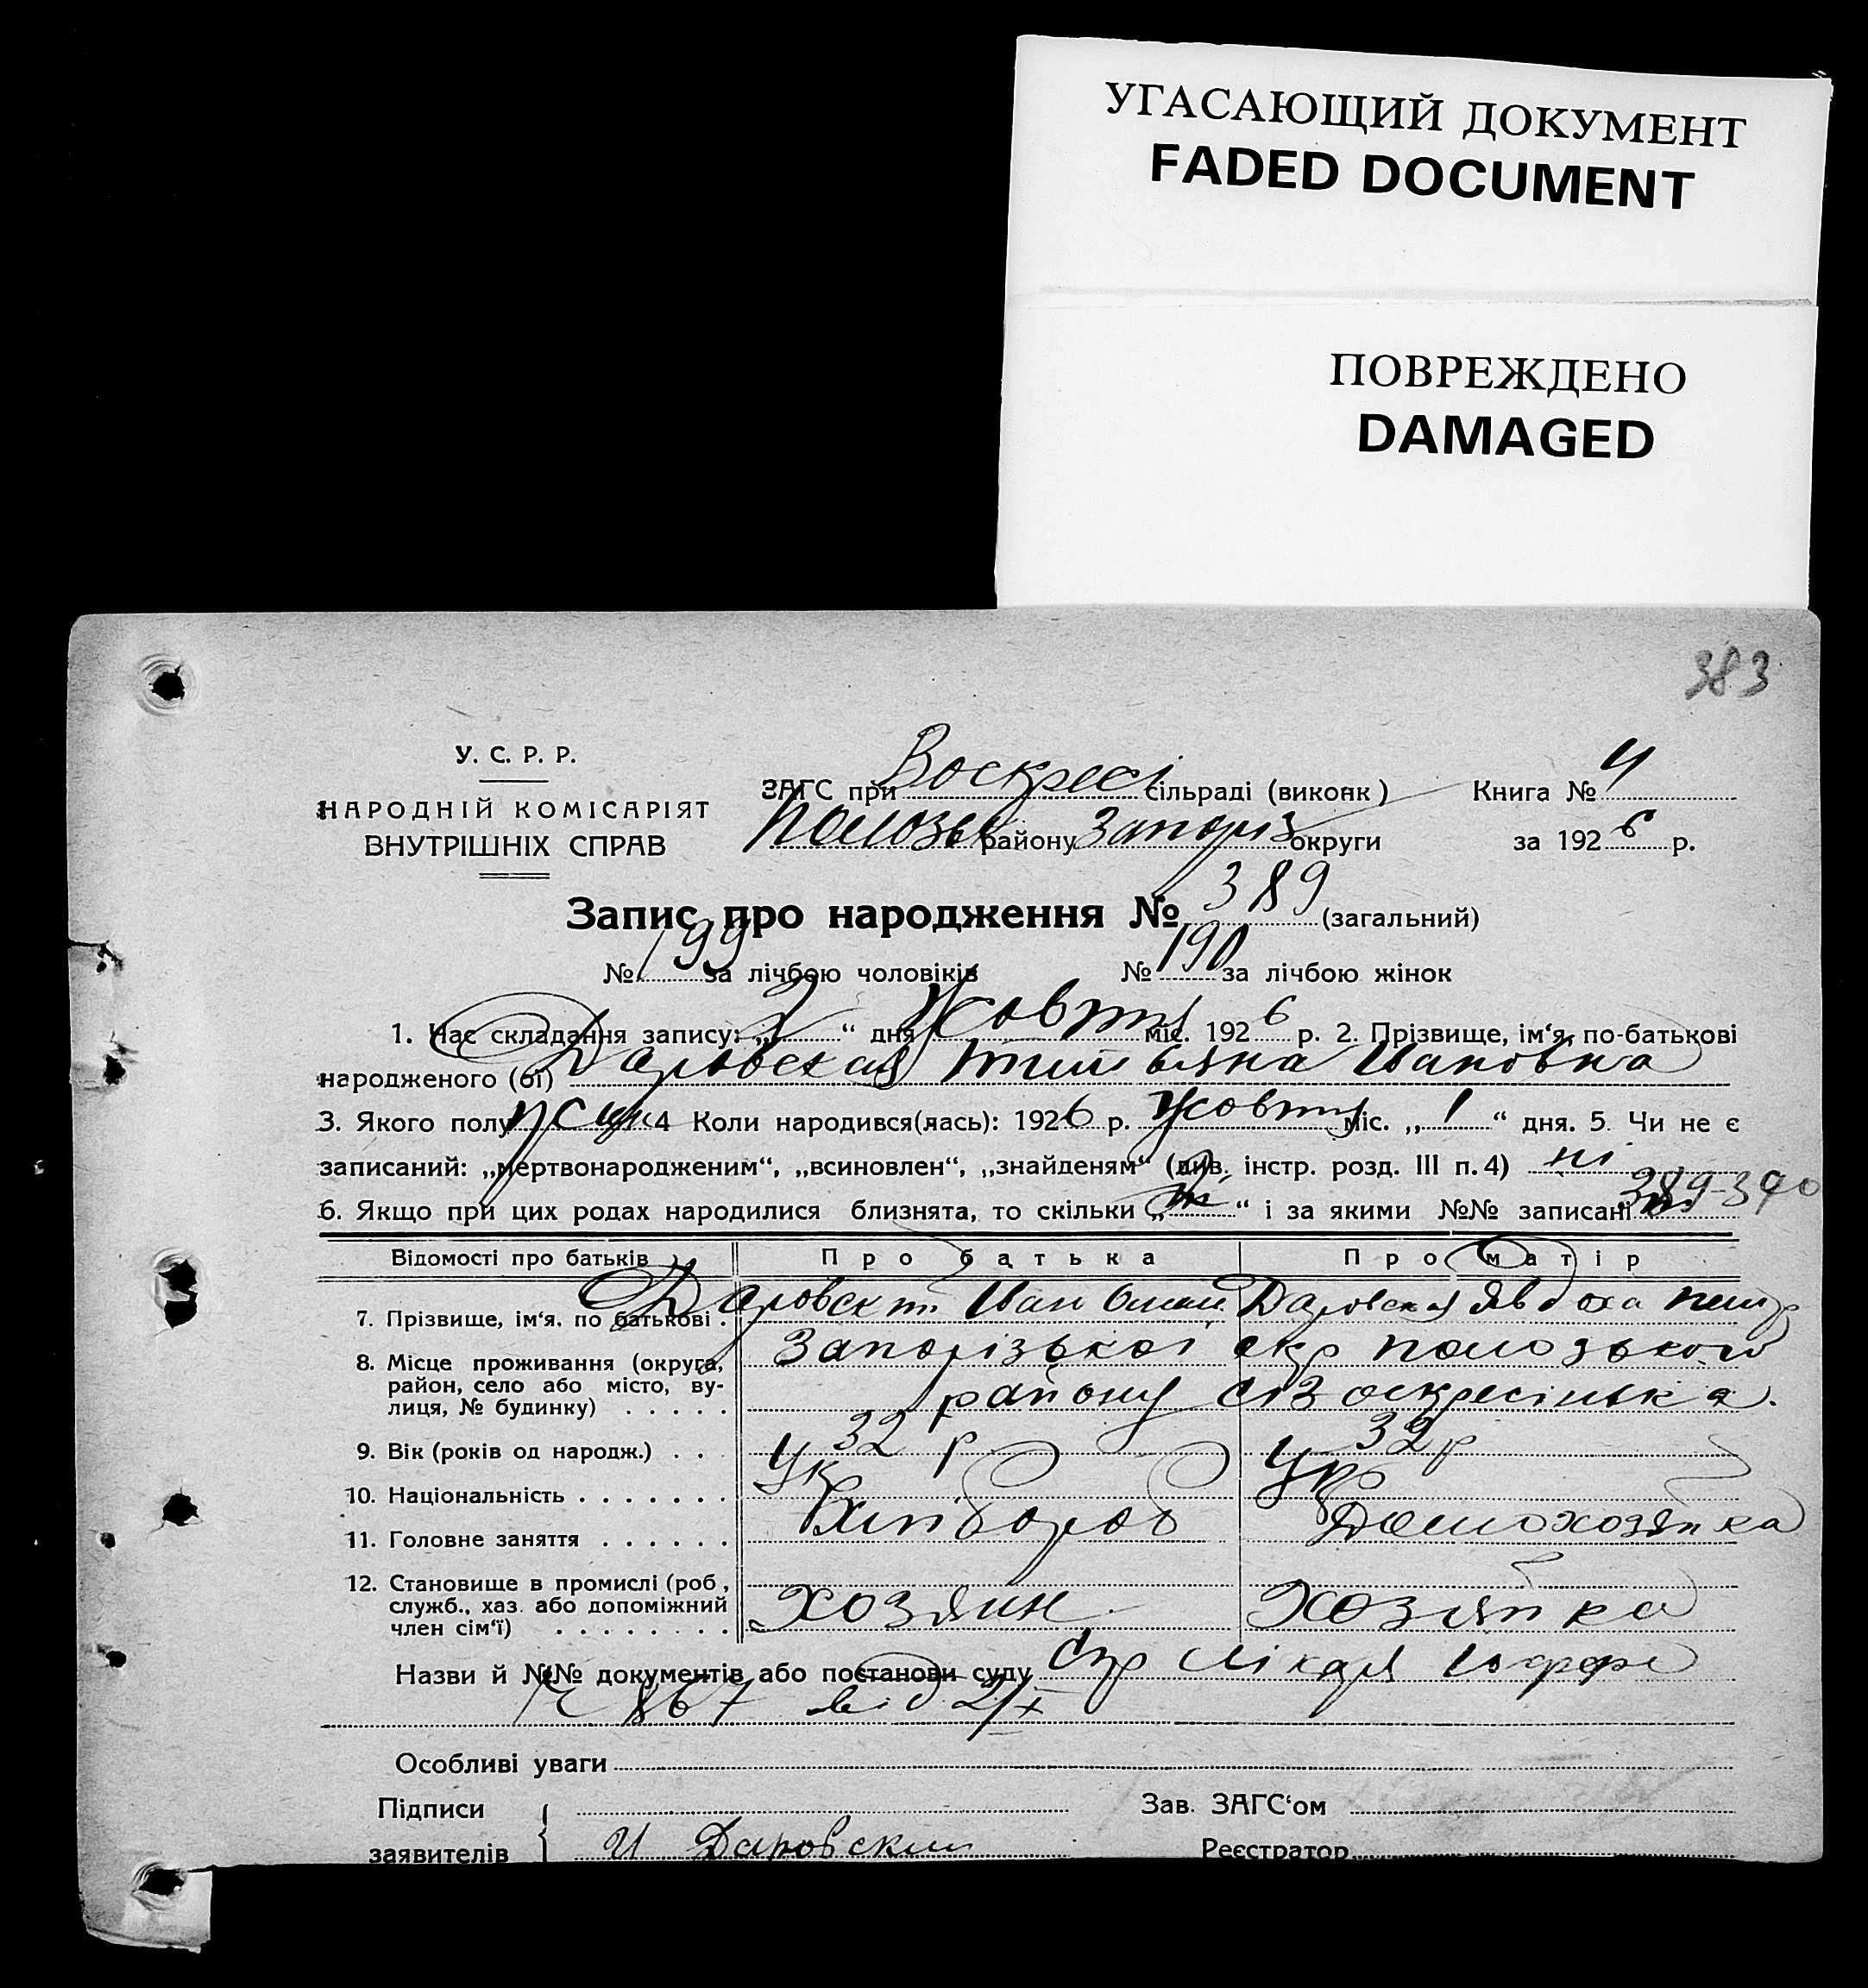 УГАСАЮЩИЙ ДОКУМЕНТ
FADED DOCUMENT
ПОВРЕЖДЕНО
DAMAGED
383
У. С. Р. Р.
НАРОДНІЙ КОМІСАРІЯТ
ВНУТРІШНІХ СПРАВ
ЗАГС при Воскресі сільраді (виконк) Книга № 4
району Запоріз округи за 1926 р.
Запис про народження № 389 (загальний)
№ 199 за лічбою чоловіків № 190 за лічбою жінок
1. Час складання запису: „2“ дня Жовтня міс. 1926 р. 2. Прізвище, ім‘я, по-батькові
народженого (ої) Даровская Титьяна Ивановка
3. Якого полу 4 Коли народився(лась): 1926 р. Жовтня міс. „1“ дня. 5. Чи не є
записаний: „мертвонародженим“, „всиновлен“, „знайденям“ (див. інстр. розд. III п. 4) ні
6. Якщо при цих родах народилися близнята, то скільки „ “ і за якими №№ записані 389-390
Відомості про батьків Про батька Про матір
7. Прізвище, ім‘я, по батькові . Даровский Иван Даровская Явдоха Петр
8. Місце проживання (округа, район, село або місто, вулиця, № будинку) . . . . . Запорізької окр Полозького
району с Воскресінька.
9. Вік (років од народж.) . . 32 р 32 р
10. Національність . . . . . . . Укр Укр
11. Головне заняття . . . . . . Хліборов Домохозяйка
12. Становище в промислі (роб, служб., хаз. або допоміжний член сім‘ї) . . . . . . . . Хозяин Хозяйка
Назви й №№ документів або постанови суду Спр лікаря Іоффе
№ 867 від 2/X
Особливі уваги
Підписи Зав. ЗАГС‘ом
заявителів И Даровский Реєстратор